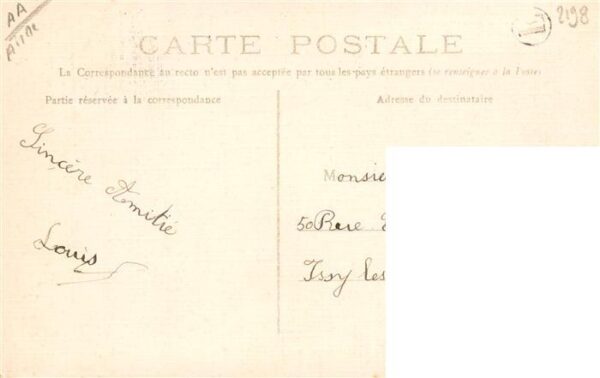 AA
2198
CARTE POSTALE
La Correspondance au recto n'est pas acceptée par tous les pays étrangers (se renseigner à la Poste)
Partie réservée à la correspondance
Adresse du destinataire
Sincère Amitié
Louis
Monsie
50 Rue
Issy les